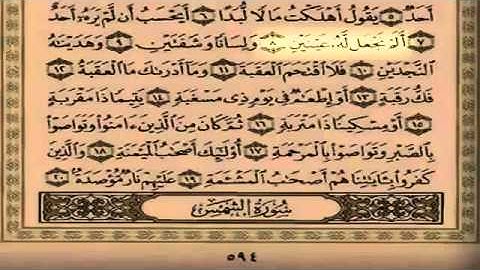 أَحَدٌ ٥ يَقُولُ أَهْلَكْتُ مَالًا لُّبَدًا ٦ أَيَحْسَبُ أَن لَّمْ يَرَهُۥٓ أَحَدٌ
٧ أَلَمْ نَجْعَل لَّهُۥ عَيْنَيْنِ ٨ وَلِسَانًا وَشَفَتَيْنِ ٩ وَهَدَيْنَٰهُ
ٱلنَّجْدَيْنِ ١٠ فَلَا ٱقْتَحَمَ ٱلْعَقَبَةَ ١١ وَمَآ أَدْرَىٰكَ مَا ٱلْعَقَبَةُ ١٢
فَكُّ رَقَبَةٍ ١٣ أَوْ إِطْعَٰمٌ فِى يَوْمٍ ذِى مَسْغَبَةٍ ١٤ يَتِيمًا ذَا مَقْرَبَةٍ
١٥ أَوْ مِسْكِينًا ذَا مَتْرَبَةٍ ١٦ ثُمَّ كَانَ مِنَ ٱلَّذِينَ ءَامَنُوا۟ وَتَوَاصَوْا۟
بِٱلصَّبْرِ وَتَوَاصَوْا۟ بِٱلْمَرْحَمَةِ ١٧ أُو۟لَٰٓئِكَ أَصْحَٰبُ ٱلْمَيْمَنَةِ ١٨ وَٱلَّذِينَ
كَفَرُوا۟ بِـَٔايَٰتِنَا هُمْ أَصْحَٰبُ ٱلْمَشْـَٔمَةِ ١٩ عَلَيْهِمْ نَارٌ مُّؤْصَدَةٌۢ ٢٠
سُورَةُ الشَّمْسِ
٥٩٤